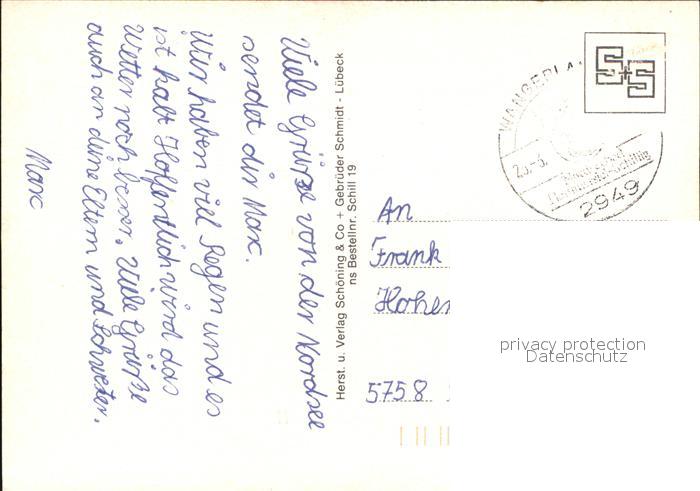 Viele Grüße von der Nordsee
sendet dir Marc.
Wir haben viel Regen und es
ist kalt Hoffentlich wird das
Wetter noch besser. Viele Grüße
auch an deine Eltern und Schwester.
Marc
Herst. u. Verlag Schöning & Co + Gebrüder Schmidt - Lübeck
ns Bestellnr. Schill 19
S+S
WANGERLA
23.-6.
2949
An
Frank
Hohen
5758
privacy protection
Datenschutz